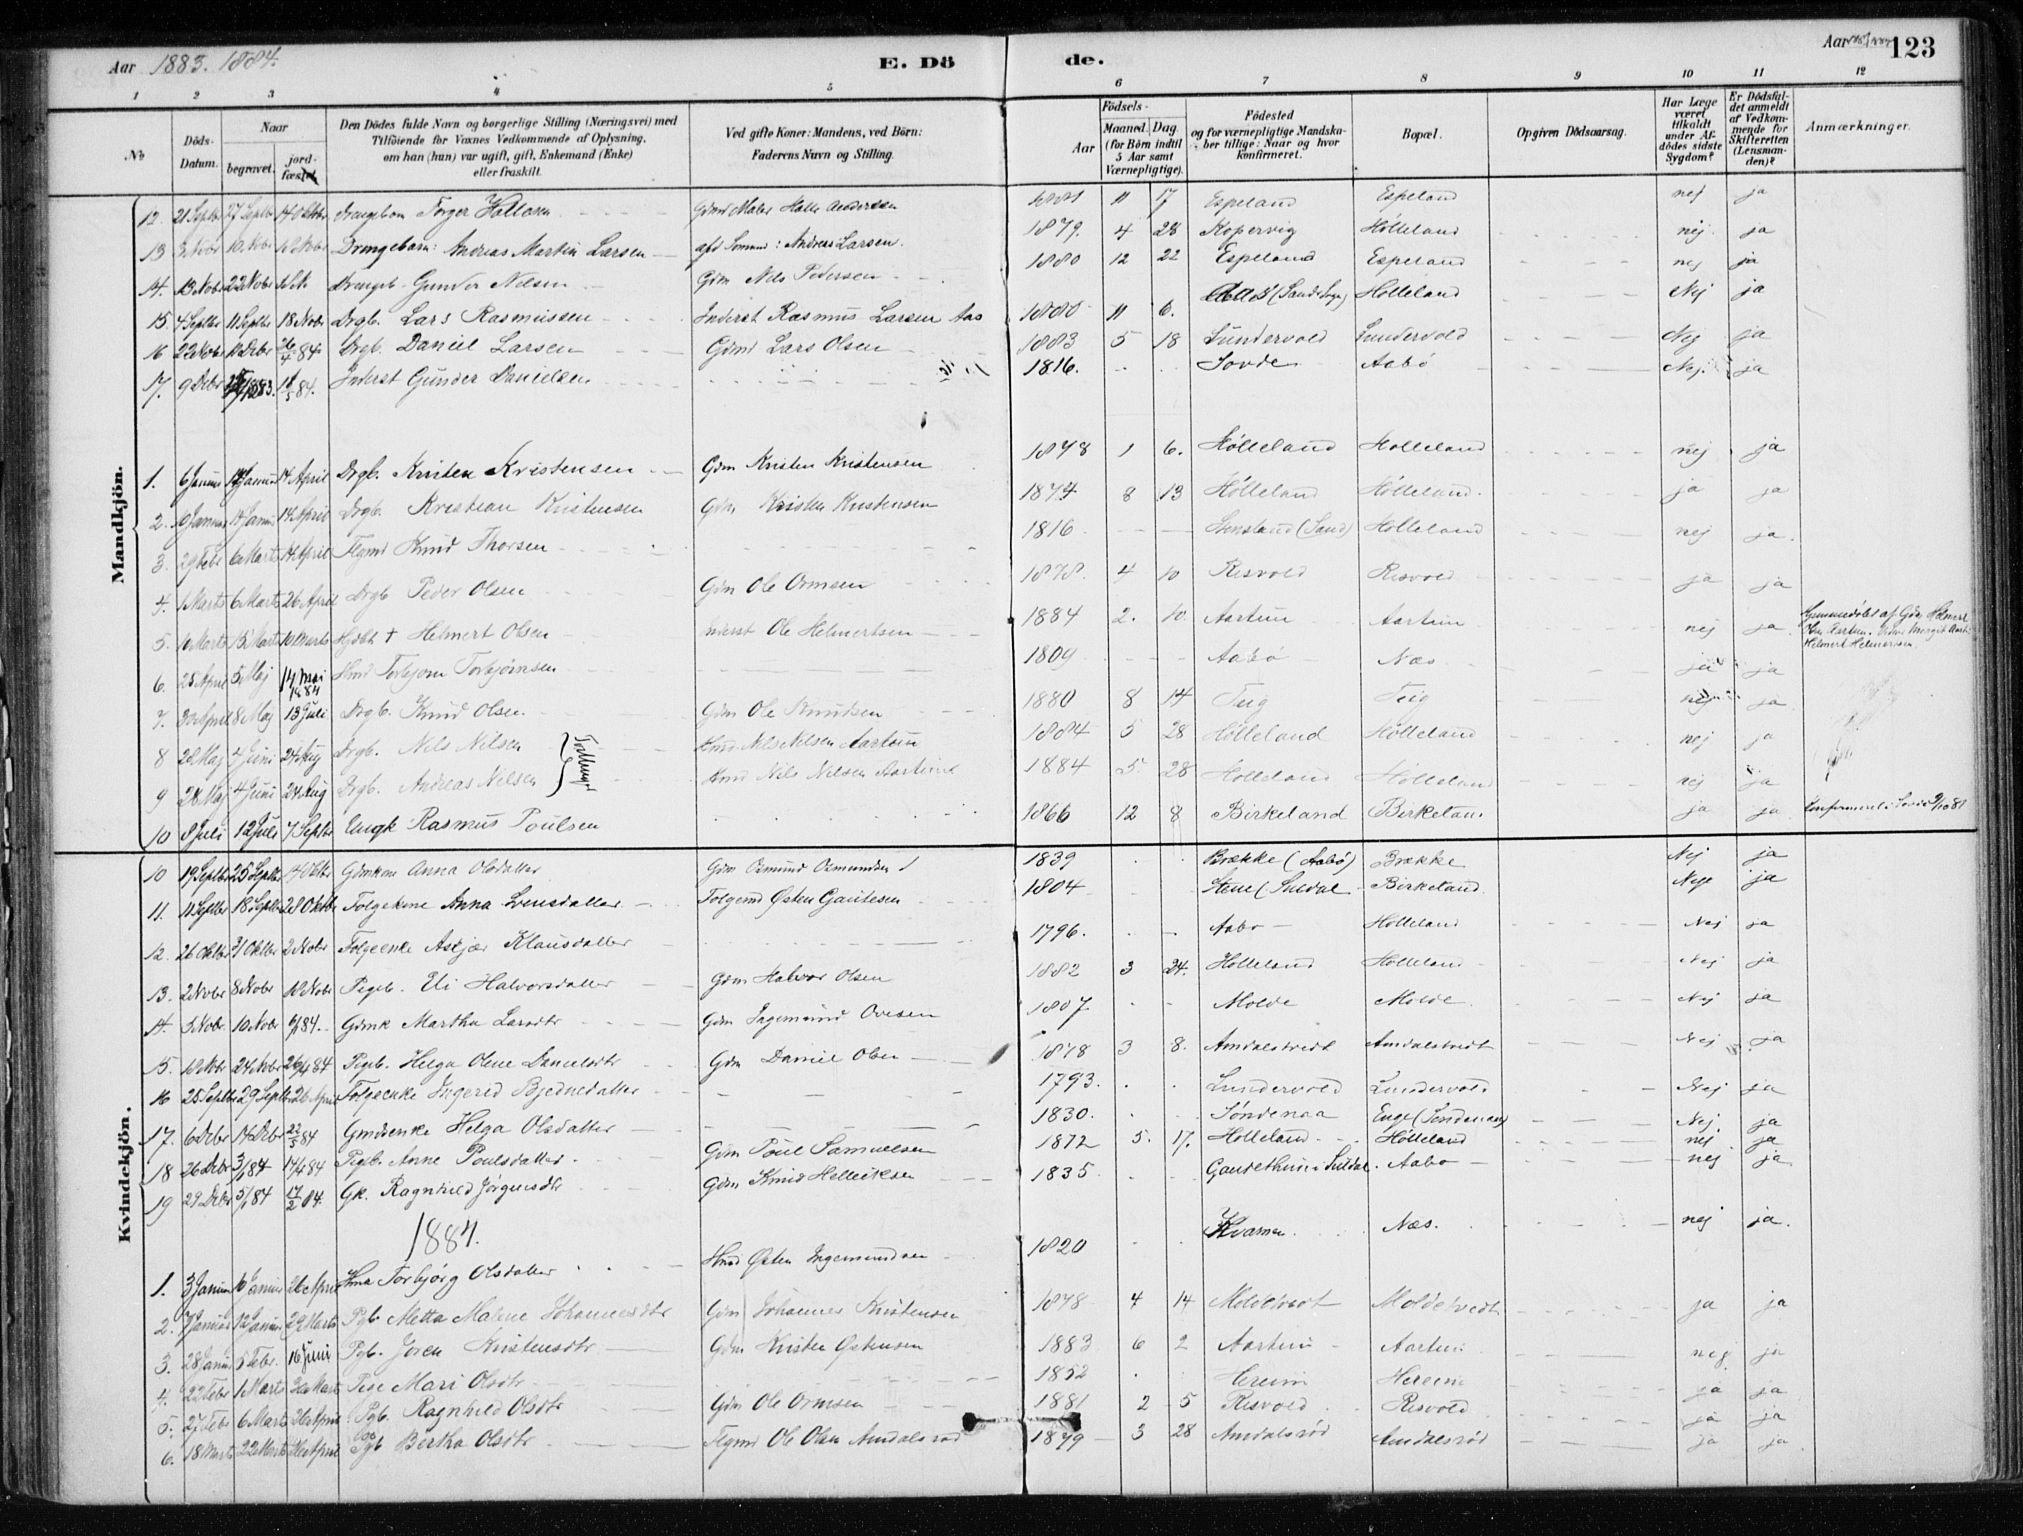 Aar 1883. 1884.
E. Dö
de.
Aar 123
1 2 3 4 5 6 7 8 9 10 11 12
No
Döds-Datum.
Naar
begravet.
jord-fæstet.
Den Dödes fulde Navn og borgerlige Stilling (Næringsvei) med
Tilföiende for Voxnes Vedkommende af Oplysning,
om han (hun) var ugift, gift, Enkemand (Enke)
eller fraskilt.
Ved gifte Koner: Mandens, ved Börn:
Faderens Navn og Stilling.
Födsels-
Aar
Maaned. Dag.
(for Börn indtil
5 Aar samt
Værnepligtige).
Födested
og for værnepligtige Mandska-
ber tillige: Naar og hvor
konfirmeret.
Bopæl.
Opgiven Dödsaarsag.
Har Læge
været
tilkaldt
under Af-
dödes sidste
Sygdom?
Er Dödsfal-
det anmeldt
af Vedkom-
mende for
Skifteretten
(Lensman-
den)?
Anmærkninger.
Mandkjön.
12. 21 Septbr 27 Septbr 14 Oktbr Drengebarn Torger Hallesen 1881 11 17 Espeland Espeland nej ja
13 3 Nobr 10 Nobr Drengebarn: Andreas Martin Larsen Andreas Larsen. 1879. 4 28 Kopervig Hölleland nej ja
14. 13 Nobr 22 Nobr Drengeb. Gunder Nilsen Gdm Nils Pedersen 1880 12 22 Espeland Espeland nej ja
15. 4 Septbr 11 Septbr 18 Nobr Drgb. Lars Rasmussen Inderst Rasmus Larsen Aas 1880 11 6. Aas (Sands Sogn) Hölleland Nej ja
16 22 Nobr Debr 26/4 84. Drgb. Daniel Larsen Gdmd Lars Olsen 1883 5 18 Lundervold Lundervold Nej ja
17. 9 Debr 1883. Inderst Gunder Danielsen 1816. Sovde Aabö Nej. ja
1. 6 Januar 14 Januar 14 April Drgb. Kristen Kristensen Gdm Kristen Kristensen 1878 1 6. Hölleland Hölleland nej ja
2. Januar 14 Januar 14 April Drgb. Kristian Kristensen Gdm Kristen Kristensen 1874 8 13 Hölleland Hölleland. ja ja
3. 29 Febr 6 Marts 14 April Flgmd Knud Thorsen 1816 (Sand) Hölleland nej ja.
4. 1 Marts 6 Marts 26 April Drgb Peder Olsen Gdm Ole Ormsen 1878. 4 10 Risvold Risvold ja ja
5. 10 Marts 15 Marts 10 Marts Hjdbt + Helmert Olsen Inderst Ole Helmertsen 1884 2. 10. Aartun Aartun nej ja. Hjemmedöbt af
Helmert Helmertsen
6. 25 April 5 Maj 14 Mai 1884 Torbjörn Torbjörnsen 1809 Aabö Næs ja ja
7. 30 April 8 Maj 13 Juli Drgb. Knud Olsen. Gdm Ole Knudsen 1880 8 14 Teig Teig nej ja
8 28 Maj 4 Juni 24 Aug Drgb. Nils Nilsen Hmd Nils Nilsen Aartun 1884 5 28 Hölleland Hölleland nej ja
Tvillinger
9 28 Maj 4 Juni 24 Aug Drgb. Andreas Nilsen Hmd Nils Nilsen Aartun 1884 5. 28 Hölleland Hölleland nej ja
10 8 Juli 12 Juli 7 Septbr Ungk Rasmus Poulsen 1866 12 8 Birkeland Birkeland ja ja
Kvindekjön.
10 19 Septbr 25 Septbr 14 Oktbr Gdmkone Anna Olsdatter Gdm Osmund Osmundsen 1839 Brække (Aabö) Brække Nej ja
11. 11 Septbr 18 Septbr 28 Oktbr Folgekone Anna Folgemd Østen Gautesen 1804 (Suldal Birkeland. Nej ja
12. 26 Oktbr 31 Oktbr 2 Nobr Folgeenke Askjær Klausdatter 1796. Aabø Hölleland Nej ja
13. 2 Nobr 8 Nobr 18 Nobr Pigeb. Eli Halvorsdatter Gdm Halvor Olsen 1882 3 24. Hölleland Hölleland Nej ja
14. Nobr. 10 Nobr 84. Gdmk Martha Larsdtr Gdm Ingemund Ovesen 1807 Molde Molde Nej ja
15. Nobr 24 Nobr 26/4 84 Pigeb. Helga Oline Danielsdtr Gdm Daniel Olsen 1878 3 8. Amdalstvedt Amdalstvedt Nej ja
16 25 Septbr 29 Septbr 26 April Folgeenke Ingerid Bjednedatter 1793. Lundervold Lundervold Nej ja
17. 6 Debr 14 Debr 22/5 84 Gmdsenke Helga Olsdatter 1830. Söndenaa Enge (Söndenaa) Nej. ja
18 26 Debr 3/1 84 14/4 84 Pigb. Anne Poulsdatter. Gdm Poul Samuelsen 1872 5. 17. Hölleland Hölleland nej ja
19 29 Debr 5/1 84 17/2 84. Gk. Ragnhild Jörgensdtr Gdm Knud Helleiksen 1835. Suldal. Aabö nej ja
1884.
1. 3 Januar 10 Januar 26 April Torbjörg Olsdatter Hmd Østen Ingemundsen 1820 Kvamen Næs. nej ja.
2. 7 Januar 12 Januar 29 Marts Pgb. Metta Malene Johannesdtr Gdm Johannes Kristensen 1878 4 14 Moldetvedt Moldetvedt ja ja
3. 28 Januar 5 Febr. 16 Juni Pgb. Joren Kristensdtr Gdm Kristen Østensen 1883 6 2 Aartun Aartun nej ja
4. 22 Febr 1 Marts Marts Pige Mari Olsdtr 1852 Hereim Hereim ja ja
5. 27 Febr 6 Marts 26 April Pgb. Ragnhild Olsdtr Gdm Ole Ormsen 1881 2 5 Risvold Risvold ja ja
6. 18 Marts 22 Marts April Pgb Bertha Olsdtr Flgmd Ole Olsen Amdalsröd 1879 3 28 Amdalsröd Amdalsröd ja ja